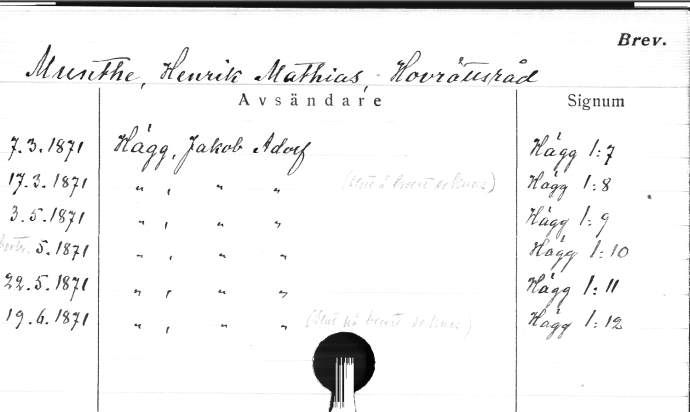 Brev.
Munthe, Henrik Mathias, Hovrättsråd
Avsändare Signum
7.3.1871 Hägg, Jakob Adolf Hägg 1:7
17.3.1871 " , " " (slut å brevet saknas) Hägg 1:8
3.5.1871 " , " " Hägg 1:9
5.1871 " , " " Hägg 1:10
22.5.1871 " , " " Hägg 1:11
19.6.1871 " , " " (slut på brevet saknas) Hägg 1:12